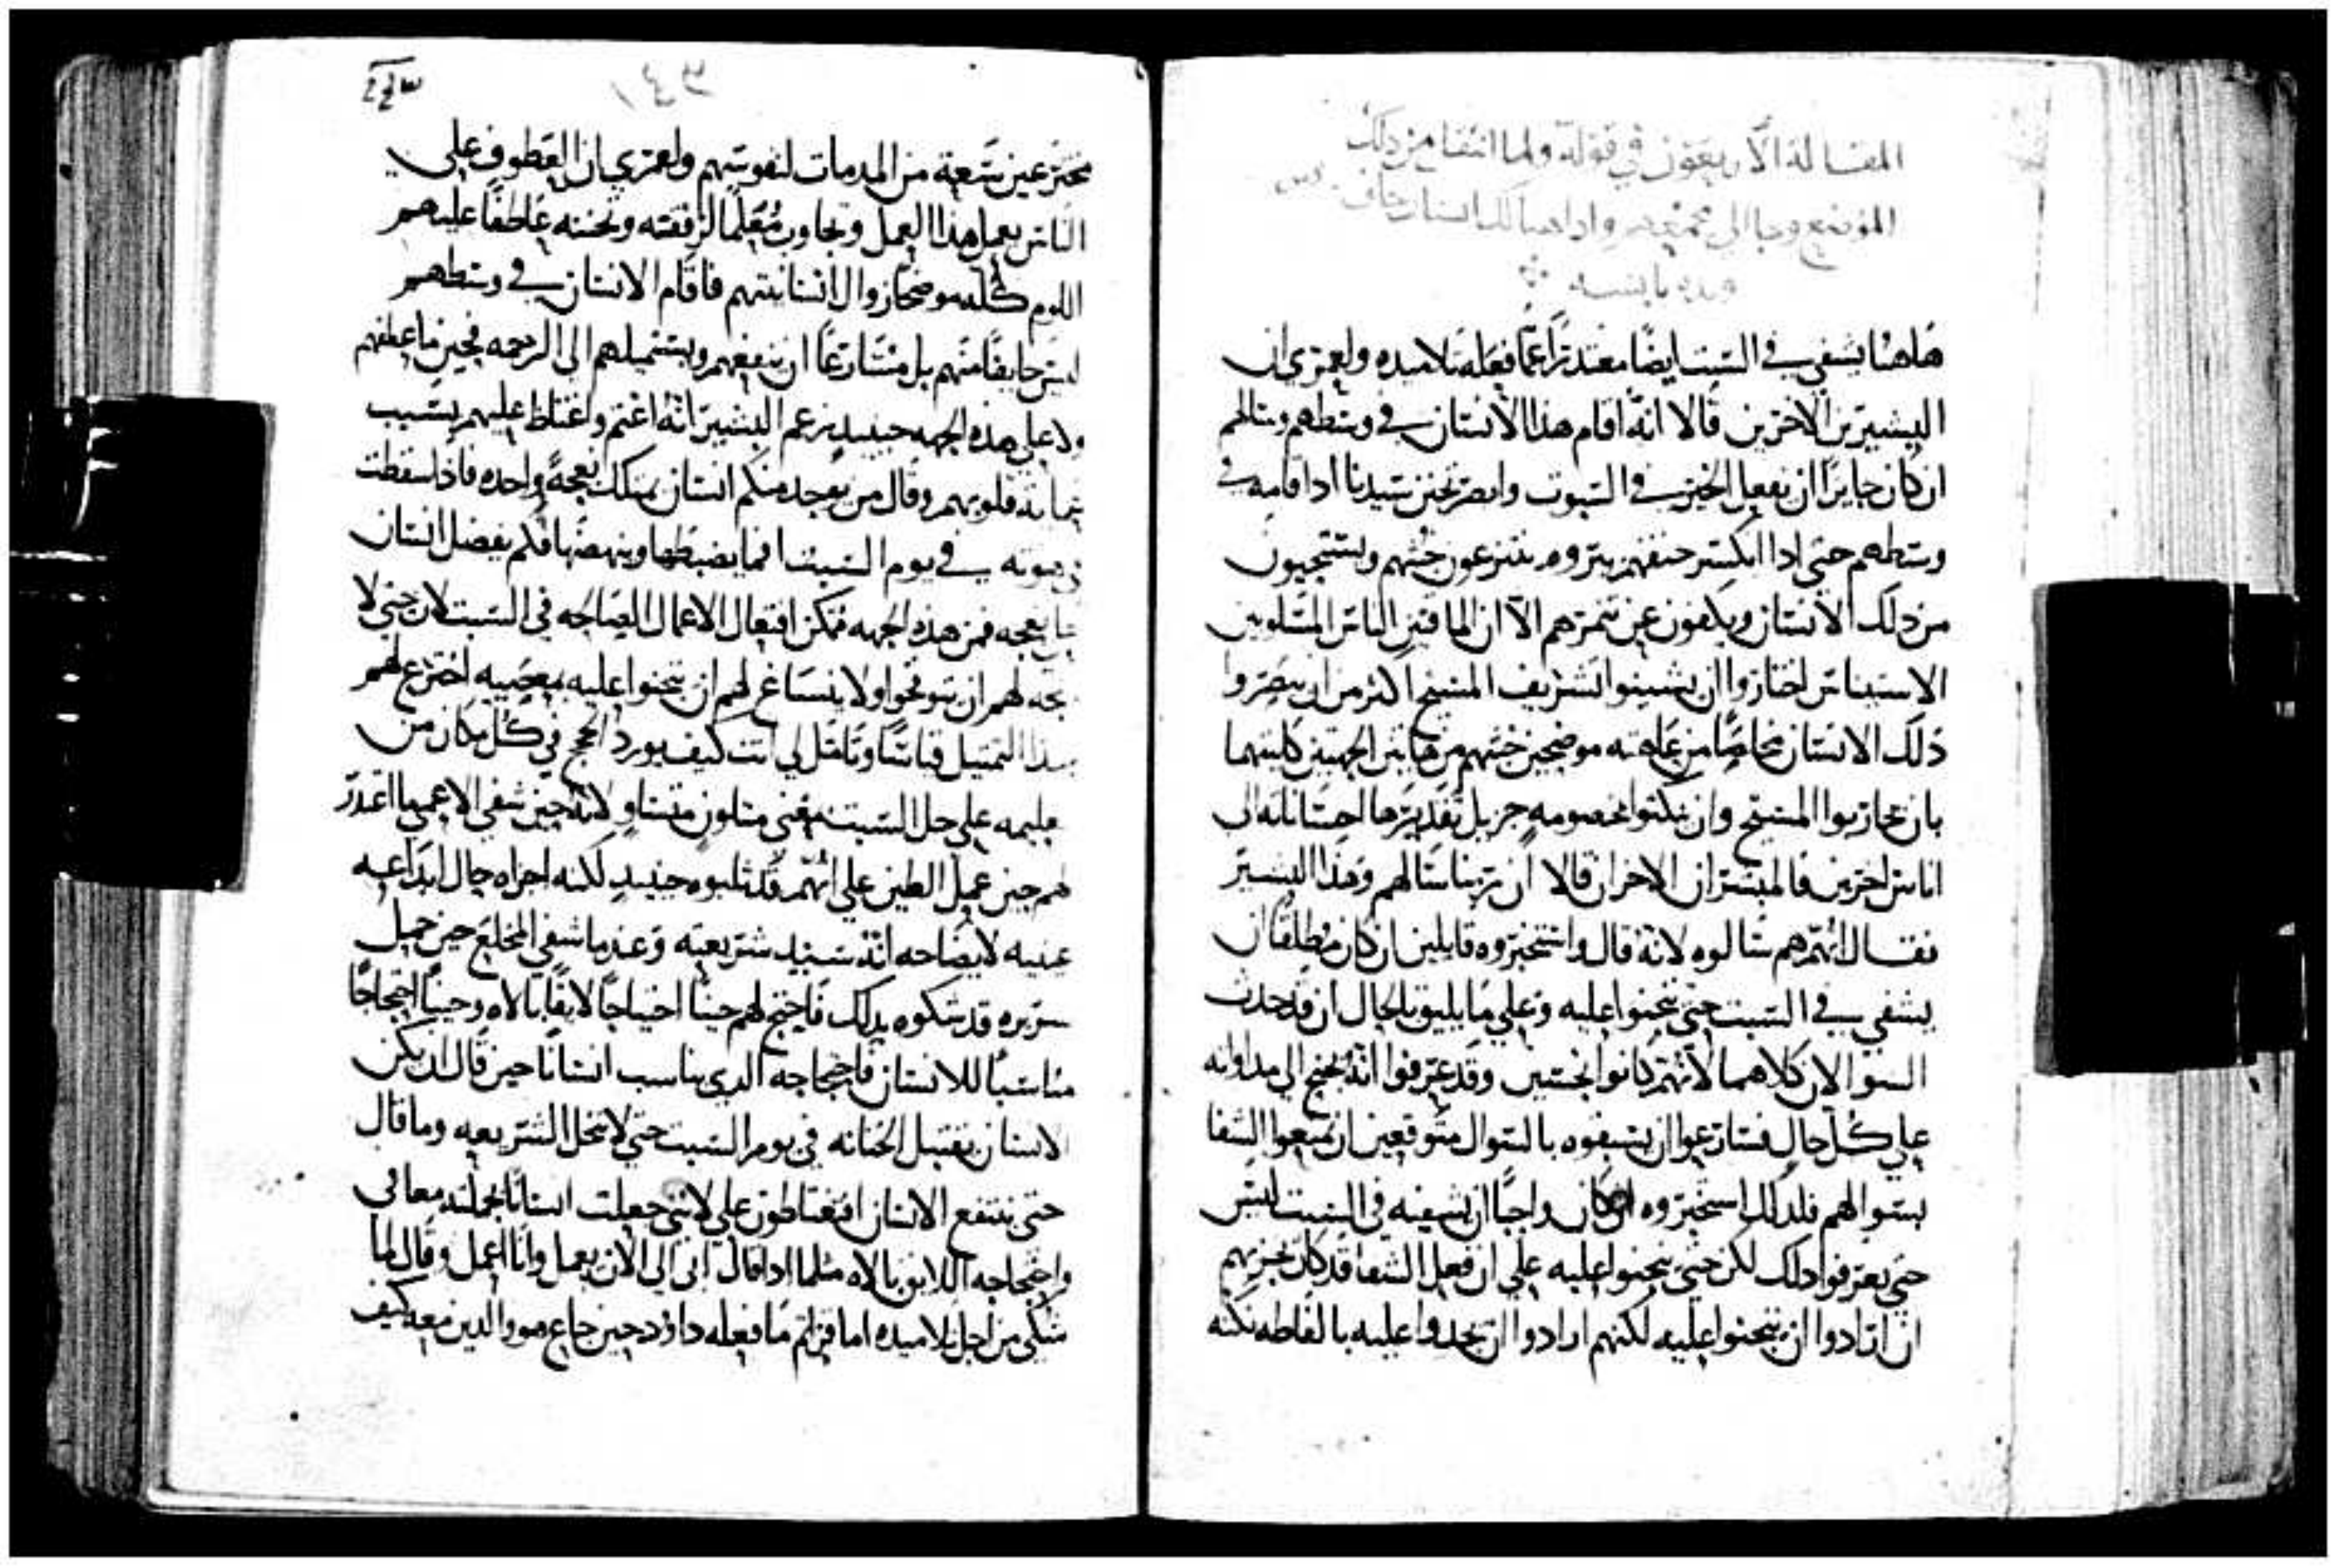 المقالة الأربعون في قوله ولما انتقل من ذلك
الموضع وجا الي مجمعهم واذا هنالك انسان جاف
ويده يابسه
هاهنا يشفي في السبت ايضًا معتدرًا عما فعله تلاميده ولعمري ان
البشيرين الاخرين قالا انه اقام هذا الانسان في وسطهم وسالهم
ان كان جايزًا ان نفعل الخير في السبوت وابصر تحنن سيدنا ادا قامه في
وسطهم حتي ادا انكسر حنقهم بنزوه ينتزعون خبثهم ويستحيون
من دلك الانسان ويكفون عن تنمرهم الا ان الماقتين الناس المسلوبين
الاستيناس اختاروا ان يشينوا تشريف المسيح اكثر من ان يبصروا
دلك الانسان مخلصًا من عاهته موضحين خبثهم من هاتين الجهتين كلتيهما
بان يحاربوا المسيح وان يكونوا بخصومه جزيل تقديرها احسانا له الي
اناس اخرين فالمبشران الاخران قالا ان ربنا سالهم وهذا البشير
فقال انهم هم سالوه لانه قال واستخبروه قايلين ان كان مطلقًا ان
يشفي في السبت حتي يتجنوا عليه وعلي ما يليق بالحال ان قد حدث
السوالان كلاهما لانهم كانوا نجسين وقد عرفوا انه يجنح الي مداواته
علي كل حال فسارعوا ان يسبقوه بالسوال متوقعين ان يمنعوا الشفا
بسوالهم فلدلك استخبروه ان كان واجبًا ان يشفيه في السبت ليس
حتي يعرفوا دلك لكن حتي يتجنوا عليه علي ان فعل الشفا قد كان يجزيهم
ان ارادوا ان يتجنوا عليه لكنهم ارادوا ان يجدوا عليه بالفاظه نكته
مخترعين سعة من المدمات لنفوسهم ولعمري ان العطوف علي
الناس يعمل هذا العمل ويجاوب مُعَلمًا لرفقته وتحننه عاطفًا عليهم
اللوم كله موضحًا زوال انسانيتهم فاقام الانسان في وسطهم
ليس خايفًا منهم بل مسارعًا ان ينفعهم ويستميلهم الي الرحمه فحين ما عطفهم
ولا علي هده الجهه حينيدٍ زعم البشير انه اغتم واغتاظ عليهم بسبب
قلوبهم وقال من يوجد منكم انسان يملك نعجةً واحده فادا سقطت
في هوته في يوم السبت فما يضبطها وينهضها فكم يفضل انسان
نعجه فمن هده الجهه ممكن افتعال الاعمال الصالحه في السبت لان حتي لا
يتجه لهم ان يتوقحوا ولا ينساغ لهم ان يتجنوا عليه بمعصيه اخترع لهم
هدا التمثيل قياسًا وتامل لي انت كيف يورد الحجج في كل مكان من
تعليمه علي حل السبت بمعني متلون متساوٍ لانه حين شفي الاعمي ما اعتدر
لهم حين عمل الطين علي انهم قد ثلبوه حينيدٍ لكنه اجراه حال ابداعه
عينيه لايضاحه انه سيد شريعته وعندما شفي المخلع حين حمل
سريره قد شكوه بدلك فاحتج لهم حينًا احتجاجًا لايقًا بالاه وحينًا احتجاجًا
مناسبًا للانسان فاحتجاجه الدي يناسب انسانًا حين قال ان يكن
الانسان يقتبل الختانه في يوم السبت حتي لا تنحل الشريعه وما قال
حتي ينتفع الانسان افتغتاظون علي لانني جعلت انسانًا بجملته معافي
واحتجاجه اللايق بالاه مثلما ادا قال ابي الي الان يعمل وانا اعمل وقال لما
شكي من اجل تلاميده اما قراتم ما فعله داوود حين جاع هو والدين معه كيف